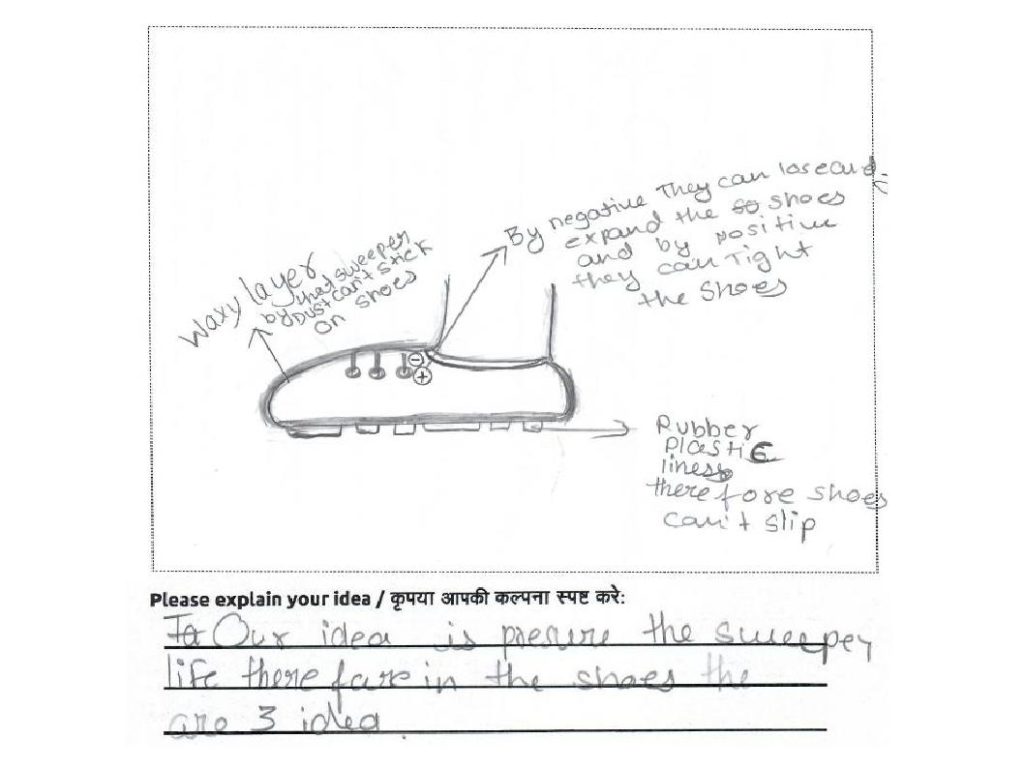 By negative They can lose and
expand the shoes
and by positive
they can Tight
the Shoes
Waxy layer
by that sweeper
Dust can't stick
on shoes
- 
+
Rubber
Plastic
lines
therefore shoes
can't slip
Please explain your idea / कृपया आपकी कल्पना स्पष्ट करे:
Our idea is presure the sweeper
life there fare in the shoes the
are 3 idea.